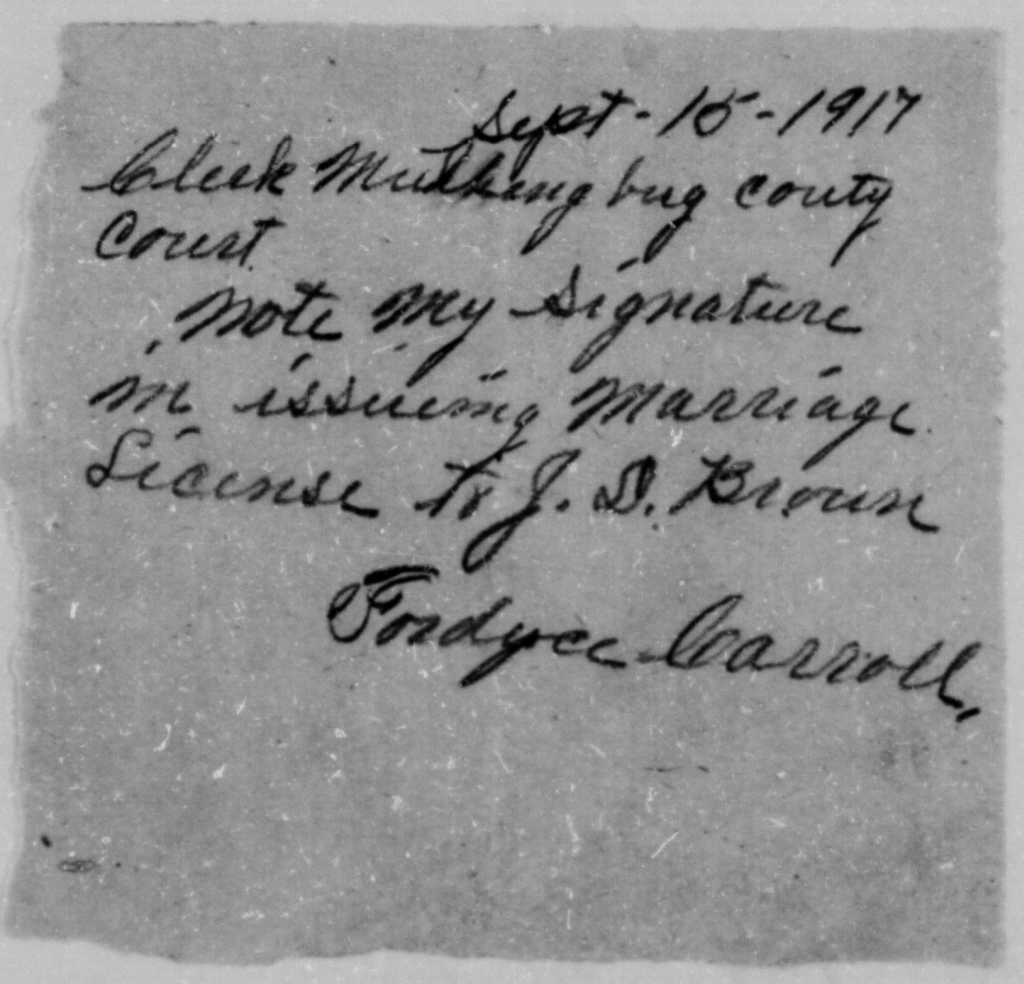 Sept - 15 - 1917
Cleck Mulhengbug couty
Court
Note my signature
in issueing marriage
License to J. D. Brown
Fordyce Carroll,